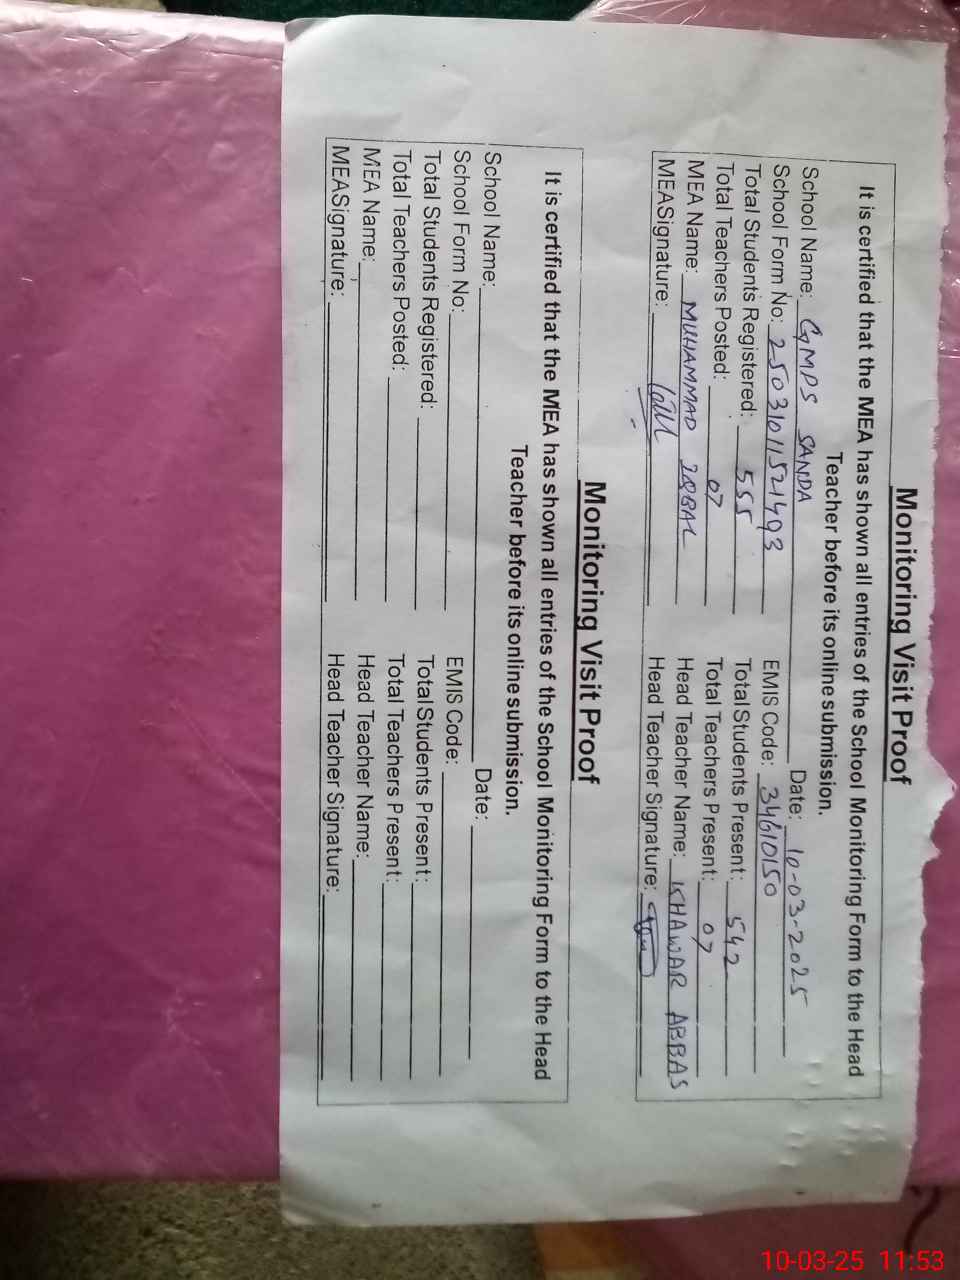 Monitoring Visit Proof
It is certified that the MEA has shown all entries of the School Monitoring Form to the Head
Teacher before its online submission.
School Name: GMPS SANDA Date: 10-03-2025
School Form No: 25031011521493 EMIS Code: 34610150
Total Students Registered: 555 Total Students Present: 542
Total Teachers Posted: 07 Total Teachers Present: 07
MEA Name: MUHAMMAD IQBAL Head Teacher Name: KHAWAR ABBAS
MEASignature: Head Teacher Signature:
Monitoring Visit Proof
It is certified that the MEA has shown all entries of the School Monitoring Form to the Head
Teacher before its online submission.
School Name: Date:
School Form No: EMIS Code:
Total Students Registered: Total Students Present:
Total Teachers Posted: Total Teachers Present:
MEA Name: Head Teacher Name:
MEASignature: Head Teacher Signature:
10-03-25 11:53